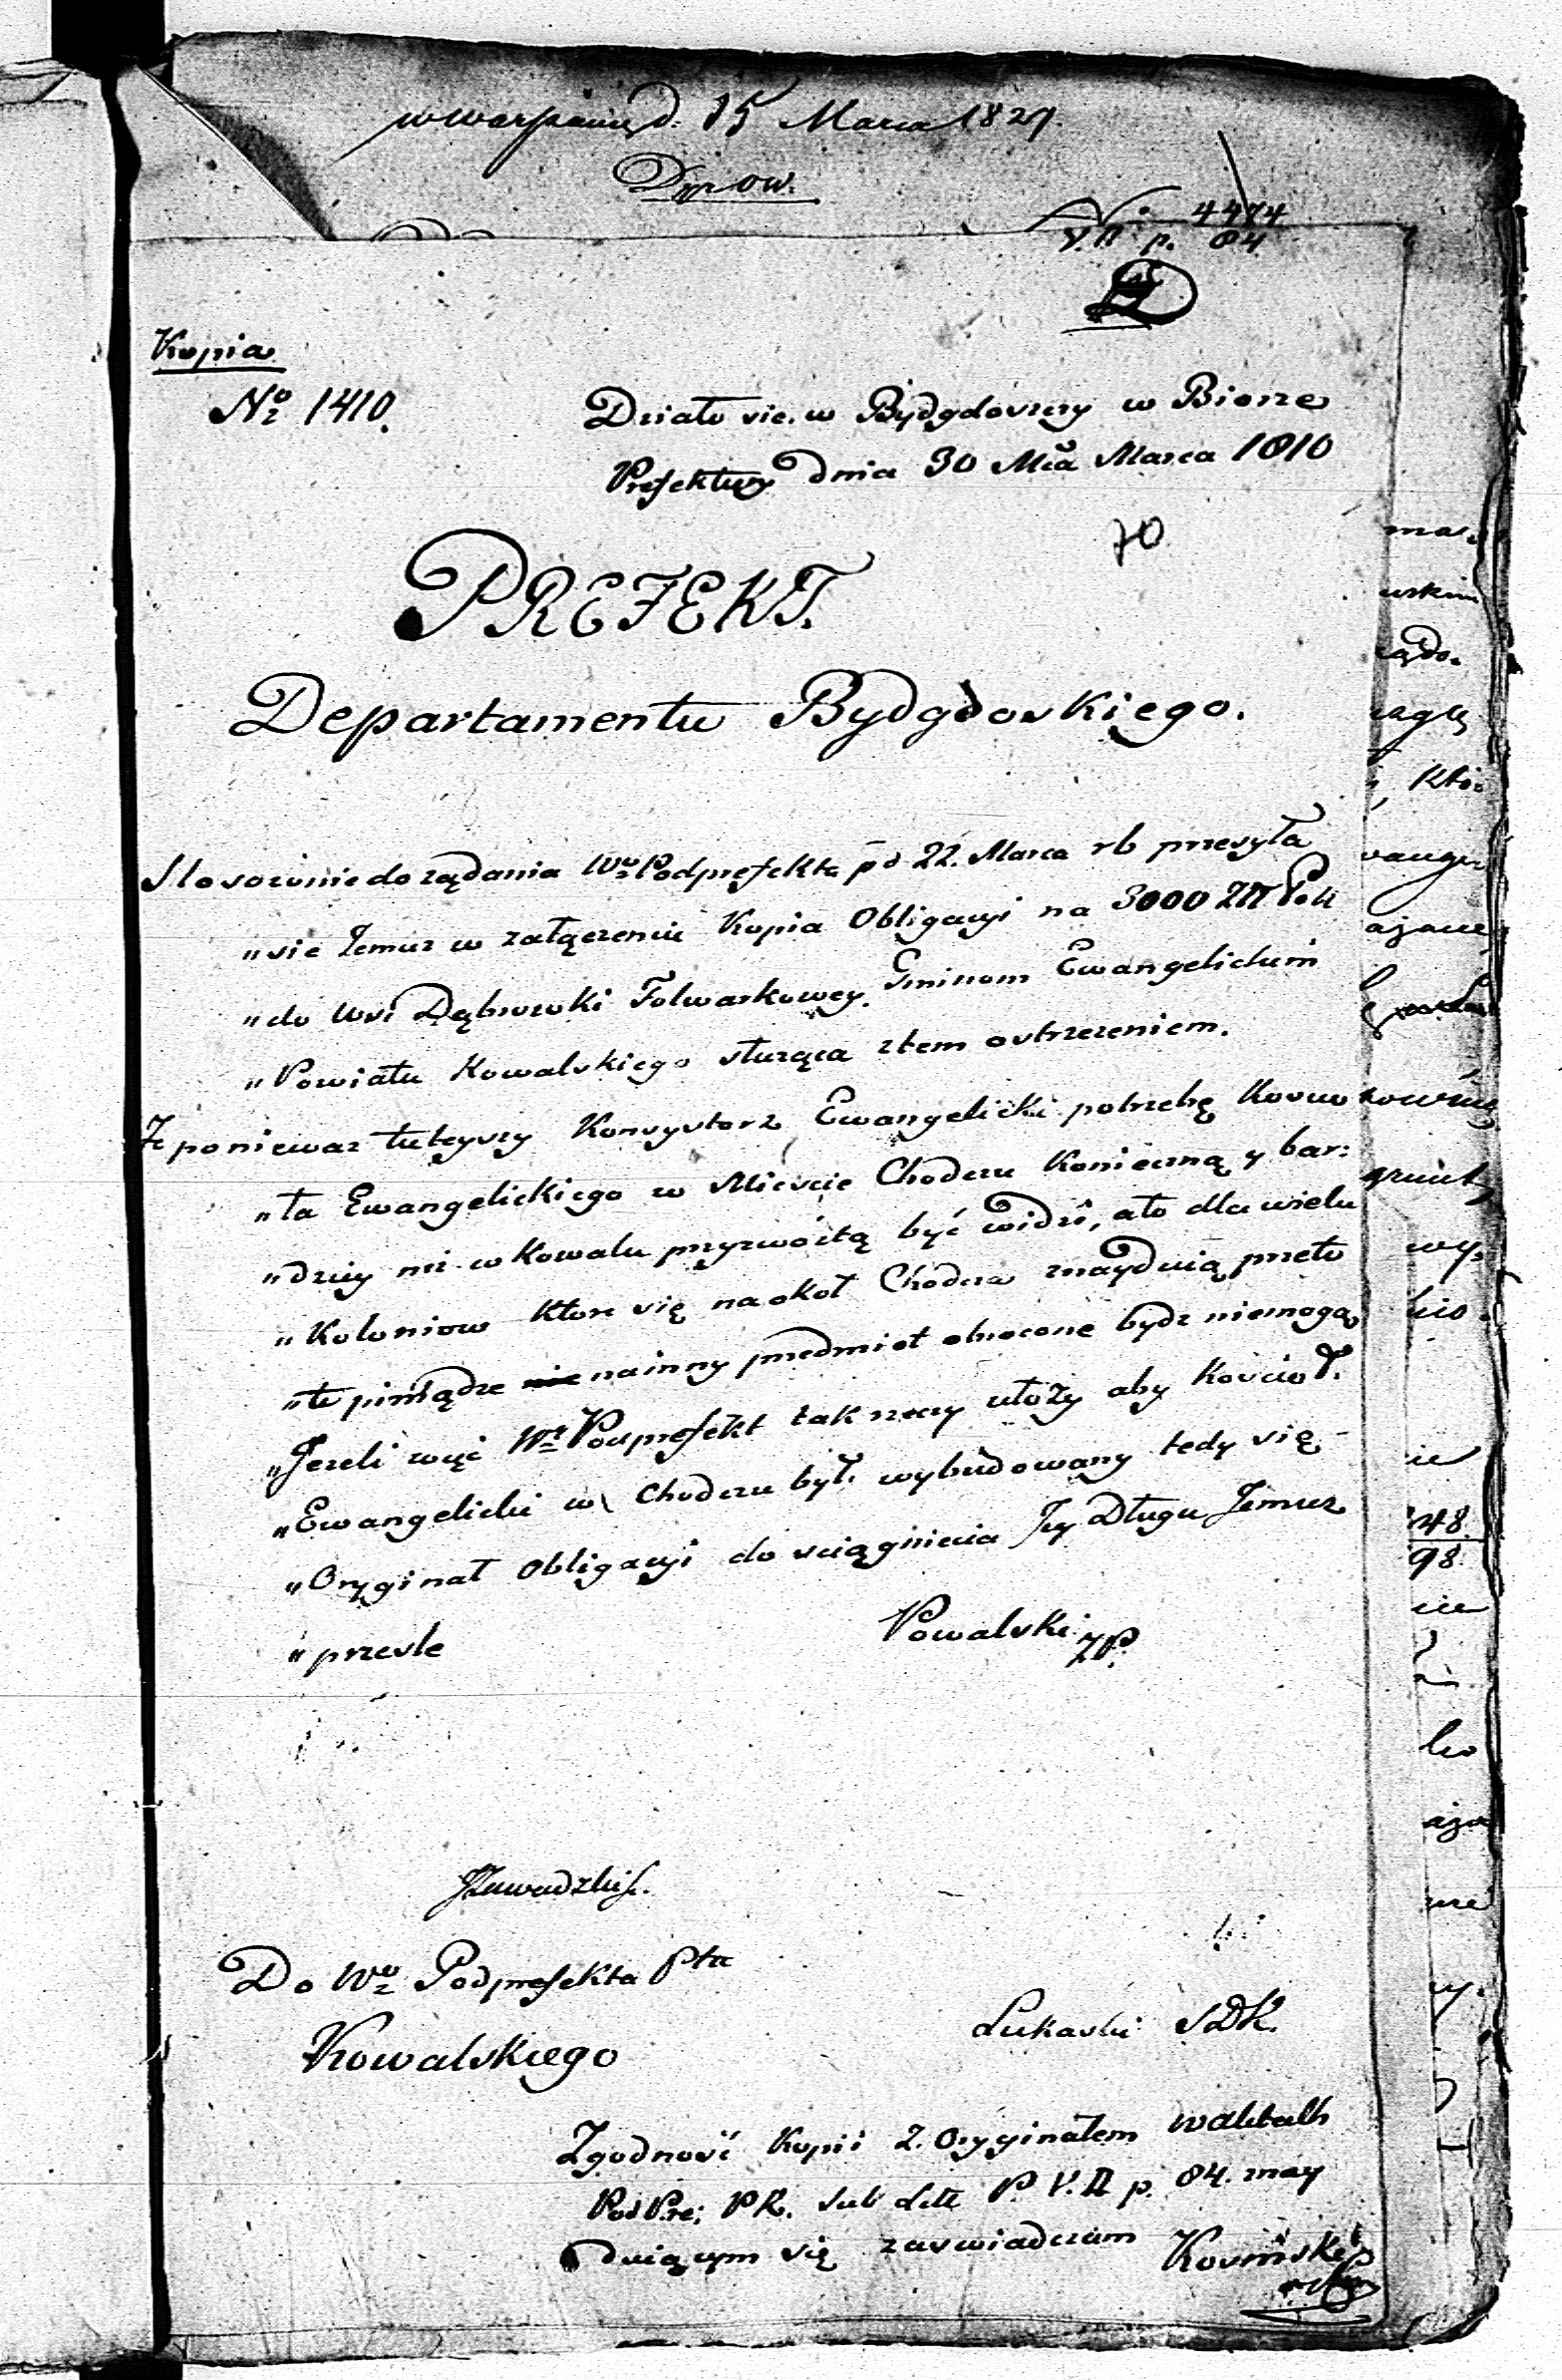 d. 15 Marca 1827.
N. 4474
V. II p. 84
Kopia
No 1410.
Działo sie. w Bydgdoszczy w Biorze
Prefektury dnia 30 Mca Marca 1810
70
PREFEKT.
Departamentu Bydgdoskiego.
Stosownie do rządania Wo Podprefekta pd 22. Marca rb przesyła
„sie Jemuz w załączeniu Kopia Obligacyi na 3000 Zł Pol
„do Wsi Dąbrowki Folwarkowey. Gminom Ewangelickim
„Powiatu Kowalskiego słuząca ztem ostrzezeniem.
Ze poniewaz tuteyszy Konsystorz Ewangelicki potrzebę Koscio
„ła Ewangelickiego w Miescie Chodczu Konieczną y bar:
„dziey niz w Kowalu przyzwoitą być widzi, ato dla wielu
„Koloniow ktore się naokoł Chodcza znayduią przeto
„te pieniądze nainny przedmiot obrocone bydz niemogą
„Jezeli więc Wy Podprefekt tak rzeczy ułozy aby Koscioł.
„Ewangelicki w Chodczu był. wybudowany tedy się
„Oryginał Obligacyi do sciągniecia Jey Długu Jemuz
„przesle
Powalski ZP.
Zawadzki
Do Wo Podprefekta Ptu
Kowalskiego
Lukaski SDK.
Zgodność Kopii z. Oryginałem waktach
PodPre; PK. sub Litt P. V. II p. 84. znay
duiącym się zaswiadczam Kosinski